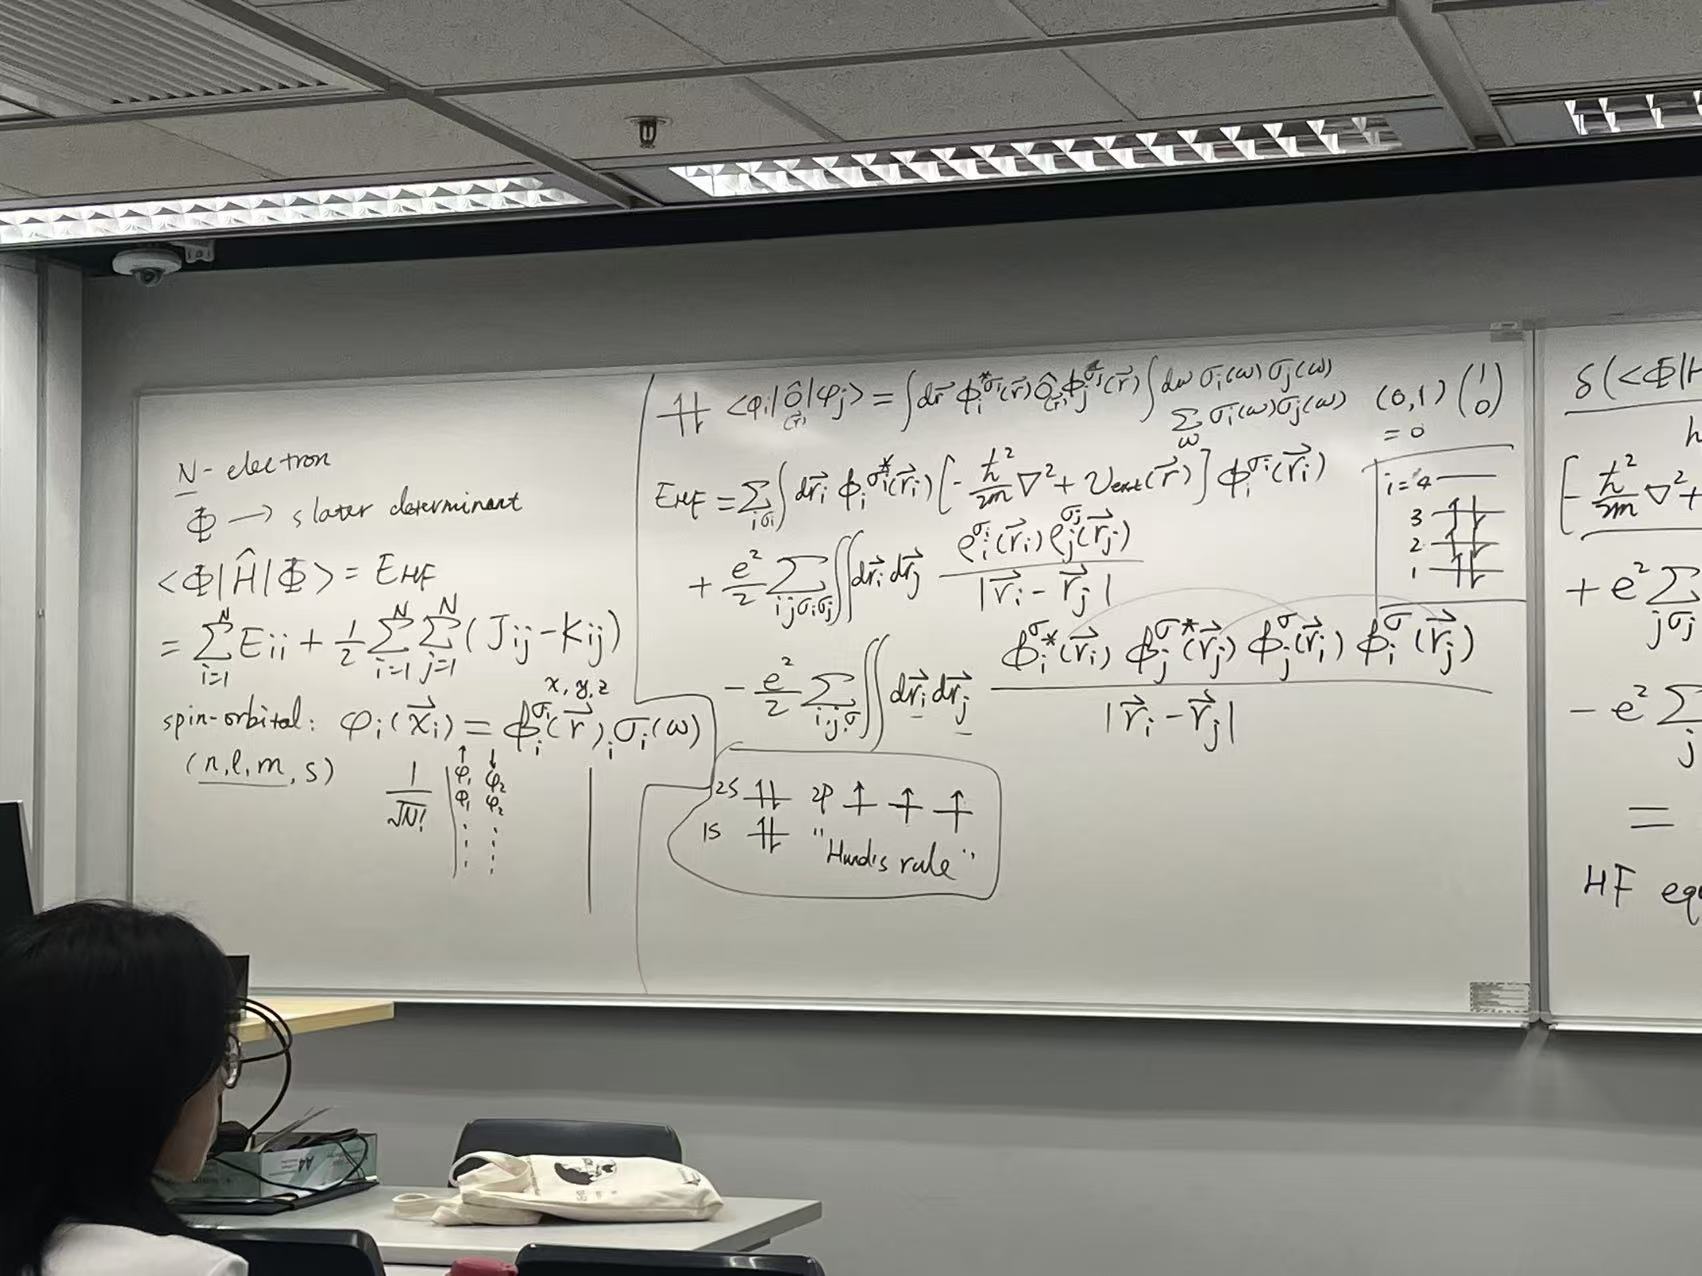 N - electron
Φ → slater determinant
<Φ|Ĥ|Φ> = E_HF
= Σ_{i=1}^{N} E_ii + 1/2 Σ_{i=1}^{N} Σ_{j=1}^{N} (J_ij - K_ij)
x, y, z
spin-orbital: φ_i(x⃗_i) = ϕ_i^{σ_i}(r⃗)_i σ_i(ω)
(n, l, m, s)
1/√N! | φ_1 φ_2 |
φ_1 φ_2
⥮ <φ_i|ô(r⃗)|φ_j> = ∫dr⃗ ϕ_i^{*σ_i}(r⃗) ô(r⃗) ϕ_j^{σ_j}(r⃗) ∫dω σ_i(ω) σ_j(ω)
Σ_ω σ_i(ω) σ_j(ω)
(0,1) (1 0)
= 0
E_HF = Σ_{iσ_i} ∫dr⃗_i ϕ_i^{σ_i*}(r⃗_i) [-ħ²/2m ∇² + v_ext(r⃗)] ϕ_i^{σ_i}(r⃗_i)
+ e²/2 Σ_{ijσ_iσ_j} ∬dr⃗_i dr⃗_j ρ_i^{σ_i}(r⃗_i) ρ_j^{σ_j}(r⃗_j) / |r⃗_i - r⃗_j|
- e²/2 Σ_{i,j,σ} ∬dr⃗_i dr⃗_j ϕ_i^{σ*}(r⃗_i) ϕ_j^{σ*}(r⃗_j) ϕ_j^{σ}(r⃗_i) ϕ_i^{σ}(r⃗_j) / |r⃗_i - r⃗_j|
i = 4
3 ⥮
2 ⥮
1 ⥮
2S ⥮ 2P ↑ ↑ ↑
1S ⥮ "Hund's rule"
δ(<Φ|H
[-ħ²/2m ∇² +
+ e² Σ_{jσ_j}
- e² Σ_j
=
HF equ
A4